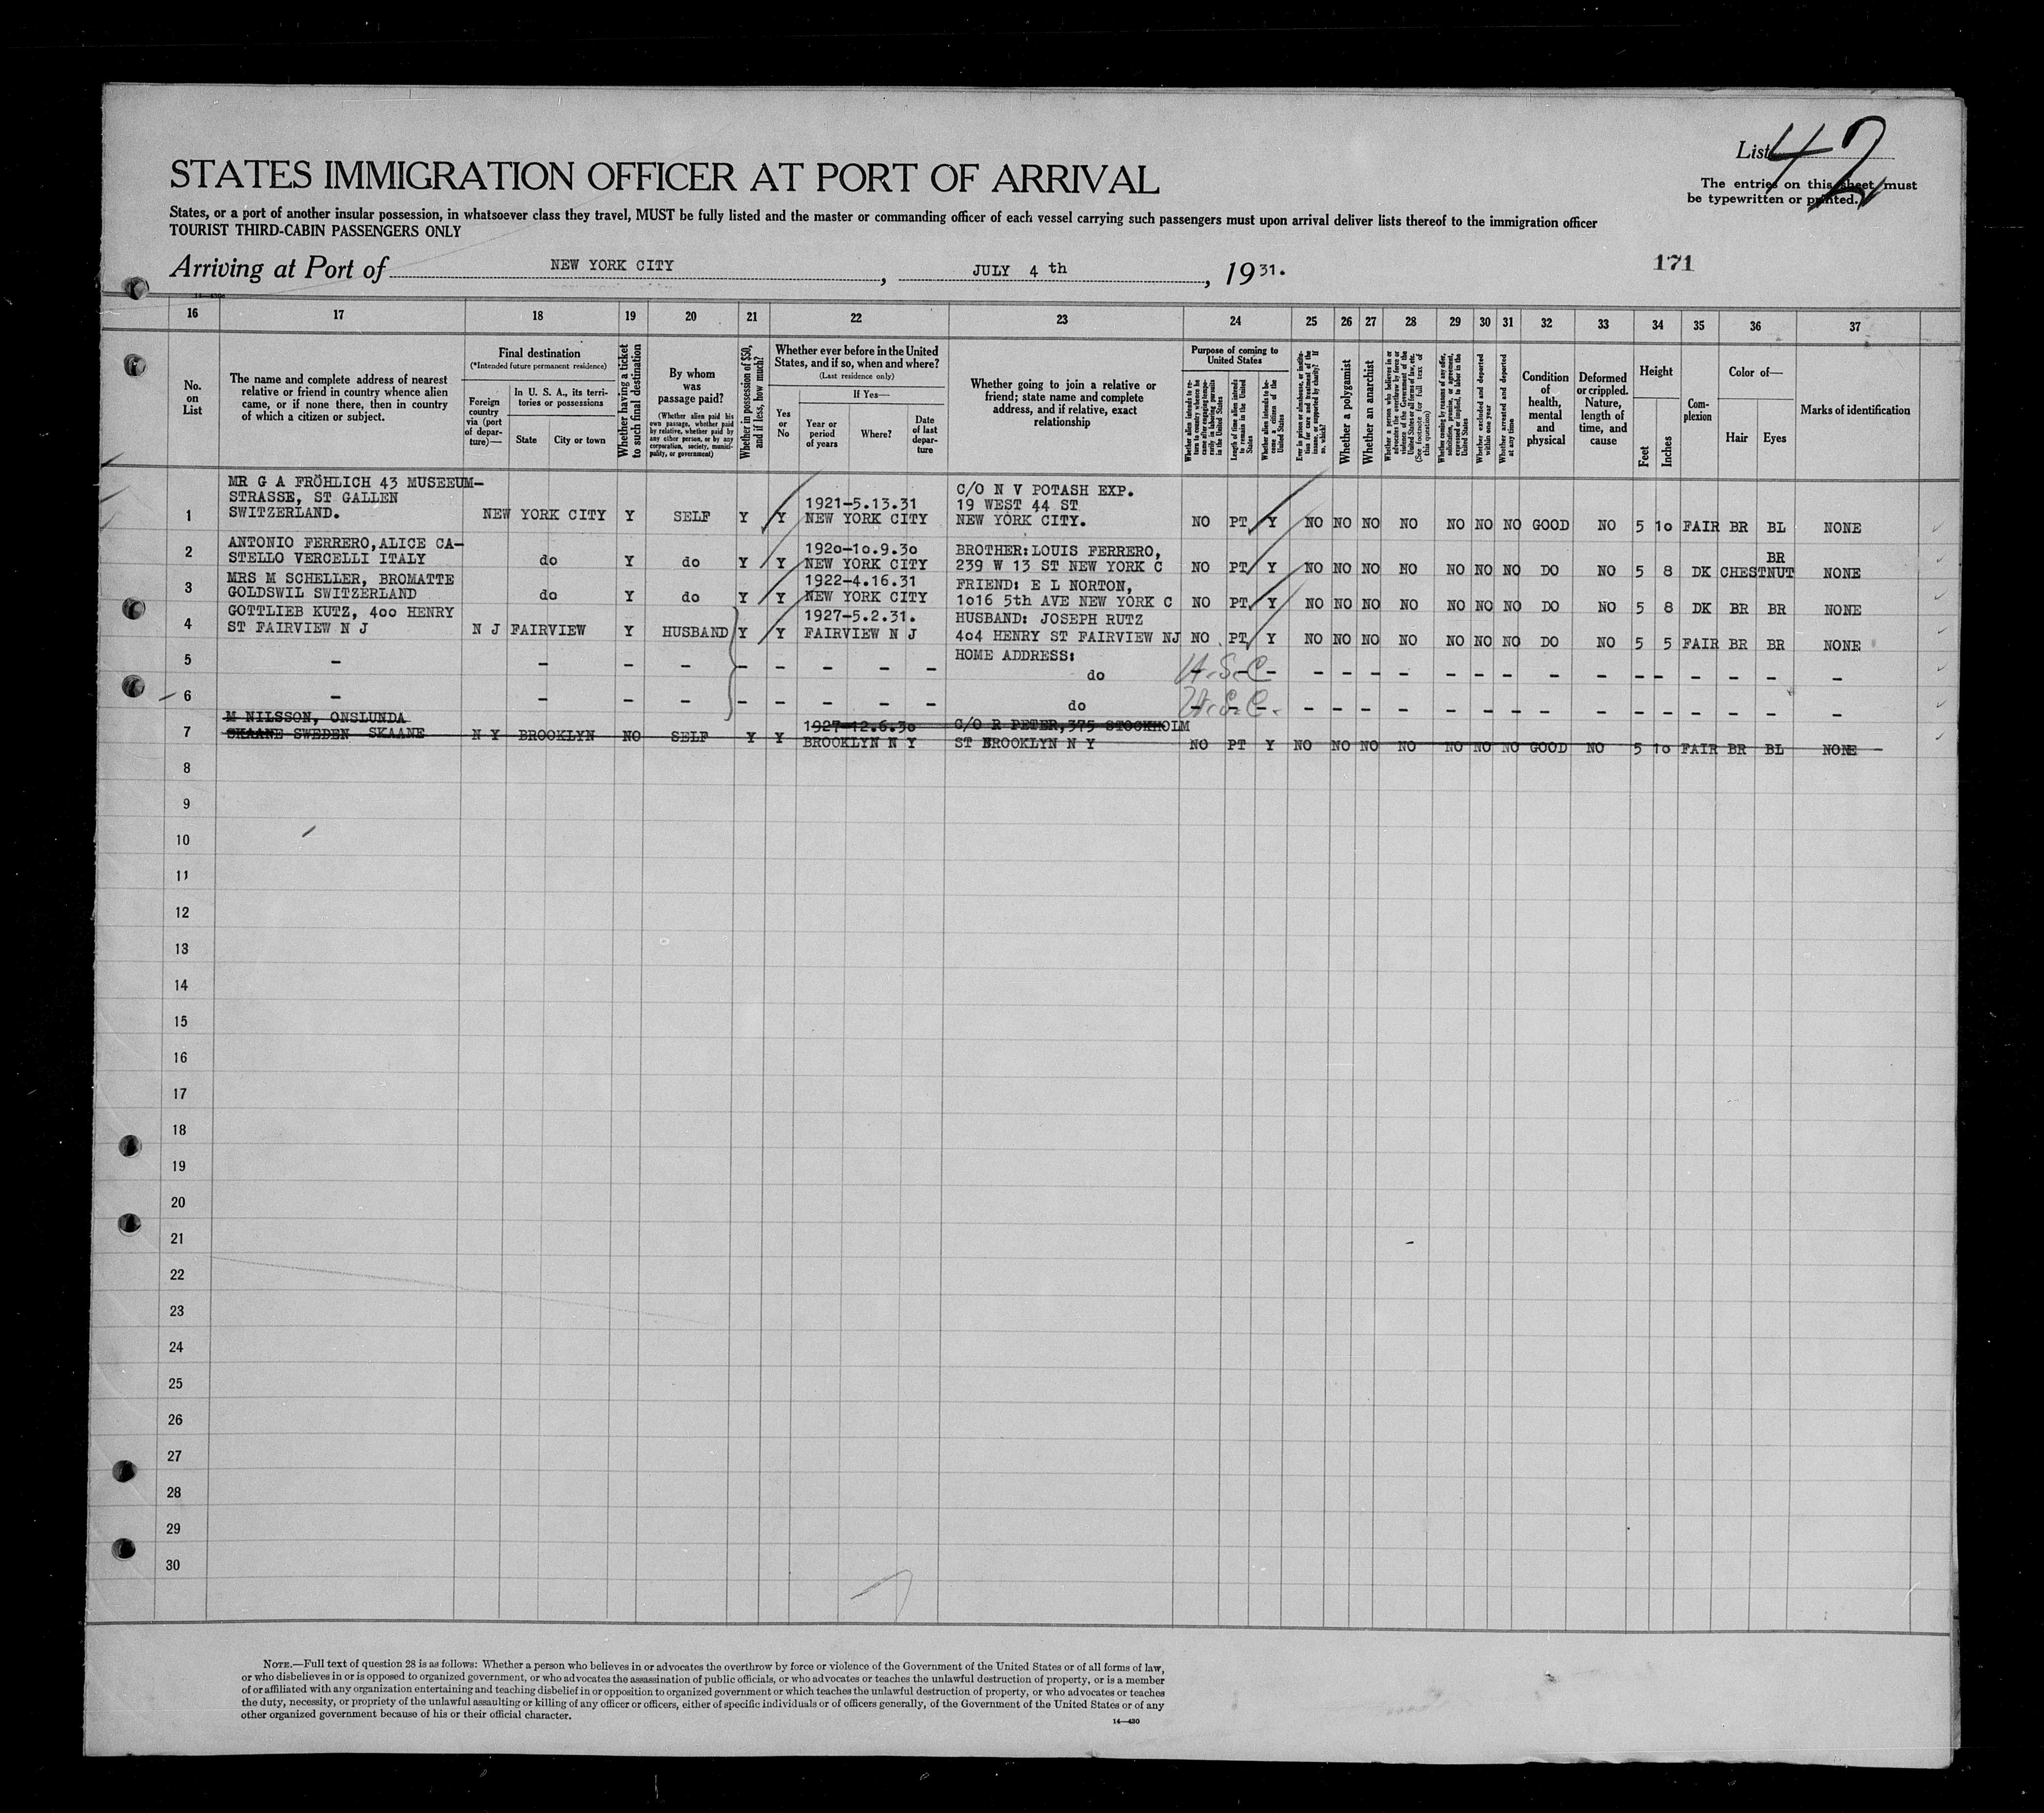 List 42
The entries on this sheet must
be typewritten or printed.
STATES IMMIGRATION OFFICER AT PORT OF ARRIVAL
States, or a port of another insular possession, in whatsoever class they travel, MUST be fully listed and the master or commanding officer of each vessel carrying such passengers must upon arrival deliver lists thereof to the immigration officer
TOURIST THIRD-CABIN PASSENGERS ONLY
Arriving at Port of NEW YORK CITY, JULY 4 th, 19 31.
171
16 17 18 19 20 21 22 23 24 25 26 27 28 29 30 31 32 33 34 35 36 37
No.
on
List
The name and complete address of nearest
relative or friend in country whence alien
came, or if none there, then in country
of which a citizen or subject.
Final destination
(*Intended future permanent residence)
Foreign
country
via (port
of depar-
ture)—
In U. S. A., its terri-
tories or possessions
State City or town
Whether having a ticket
to such final destination
By whom
was
passage paid?
(Whether alien paid his
own passage, whether paid
by relative, whether paid by
any other person, or by any
corporation, society, munici-
pality, or government)
Whether in possession of $50,
and if less, how much?
Whether ever before in the United
States, and if so, when and where?
(Last residence only)
Yes
or
No
If Yes—
Year or
period
of years
Where?
Date
of last
depar-
ture
Whether going to join a relative or
friend; state name and complete
address, and if relative, exact
relationship
Purpose of coming to
United States
Whether alien intends to re-
turn to country whence he
came after engaging tempo-
rarily in laboring pursuits
in the United States
Length of time alien intends
to remain in the United
States
Whether alien intends to be-
come a citizen of the
United States
Ever in prison or almshouse, or institu-
tion for care and treatment of the
insane, or supported by charity? If
so, which?
Whether a polygamist
Whether an anarchist
Whether a person who believes in or
advocates the overthrow by force or
violence of the Government of the
United States or all forms of law, etc.
(See footnote for full text of
this question)
Whether coming by reasons of any offer,
solicitation, promise, or agreement,
expressed or implied, to labor in the
United States
Whether excluded and deported
within one year
Whether arrested and deported
at any time
Condition
of
health,
mental
and
physical
Deformed
or crippled.
Nature,
length of
time, and
cause
Height
Feet Inches
Com-
plexion
Color of—
Hair Eyes
Marks of identification
MR G A FRÖHLICH 43 MUSEEUM-
STRASSE, ST GALLEN 1921-5.13.31 C/O N V POTASH EXP.
19 WEST 44 ST
1 SWITZERLAND. NEW YORK CITY Y SELF Y Y NEW YORK CITY NEW YORK CITY. NO PT Y NO NO NO NO NO NO NO GOOD NO 5 10 FAIR BR BL NONE
ANTONIO FERRERO, ALICE CA- 1920-10.9.30 BROTHER: LOUIS FERRERO, BR
2 STELLO VERCELLI ITALY do Y do Y Y NEW YORK CITY 239 W 13 ST NEW YORK C NO PT Y NO NO NO NO NO NO NO DO NO 5 8 DK CHESTNUT NONE
MRS M SCHELLER, BROMATTE 1922-4.16.31 FRIEND: E L NORTON,
3 GOLDSWIL SWITZERLAND do Y do Y Y NEW YORK CITY 1016 5th AVE NEW YORK C NO PT Y NO NO NO NO NO NO NO DO NO 5 8 DK BR BR NONE
GOTTLIEB KUTZ, 400 HENRY 1927-5.2.31. HUSBAND: JOSEPH RUTZ
4 ST FAIRVIEW N J N J FAIRVIEW Y HUSBAND Y Y FAIRVIEW N J 404 HENRY ST FAIRVIEW NJ NO PT Y NO NO NO NO NO NO NO DO NO 5 5 FAIR BR BR NONE
HOME ADDRESS:
5 - - - - - - - - - do U.S.C. - - - - - - - - - - - - - - -
6 - - - - - - - - - do U.S.C. - - - - - - - - - - - - - - -
M NILSSON, ONSLUNDA 1927-12.6.30 C/O R PETER, 375 STOCKHOLM
7 SKAANE SWEDEN SKAANE N Y BROOKLYN NO SELF Y Y BROOKLYN N Y ST BROOKLYN N Y NO PT Y NO NO NO NO NO NO NO GOOD NO 5 10 FAIR BR BL NONE
8
9
10
11
12
13
14
15
16
17
18
19
20
21
22
23
24
25
26
27
28
29
30
NOTE.—Full text of question 28 is as follows: Whether a person who believes in or advocates the overthrow by force or violence of the Government of the United States or of all forms of law,
or who disbelieves in or is opposed to organized government, or who advocates the assassination of public officials, or who advocates or teaches the unlawful destruction of property, or is a member
of or affiliated with any organization entertaining and teaching disbelief in or opposition to organized government or which teaches the unlawful destruction of property, or who advocates or teaches
the duty, necessity, or propriety of the unlawful assaulting or killing of any officer or officers, either of specific individuals or of officers generally, of the Government of the United States or of any
other organized government because of his or their official character.
14—430